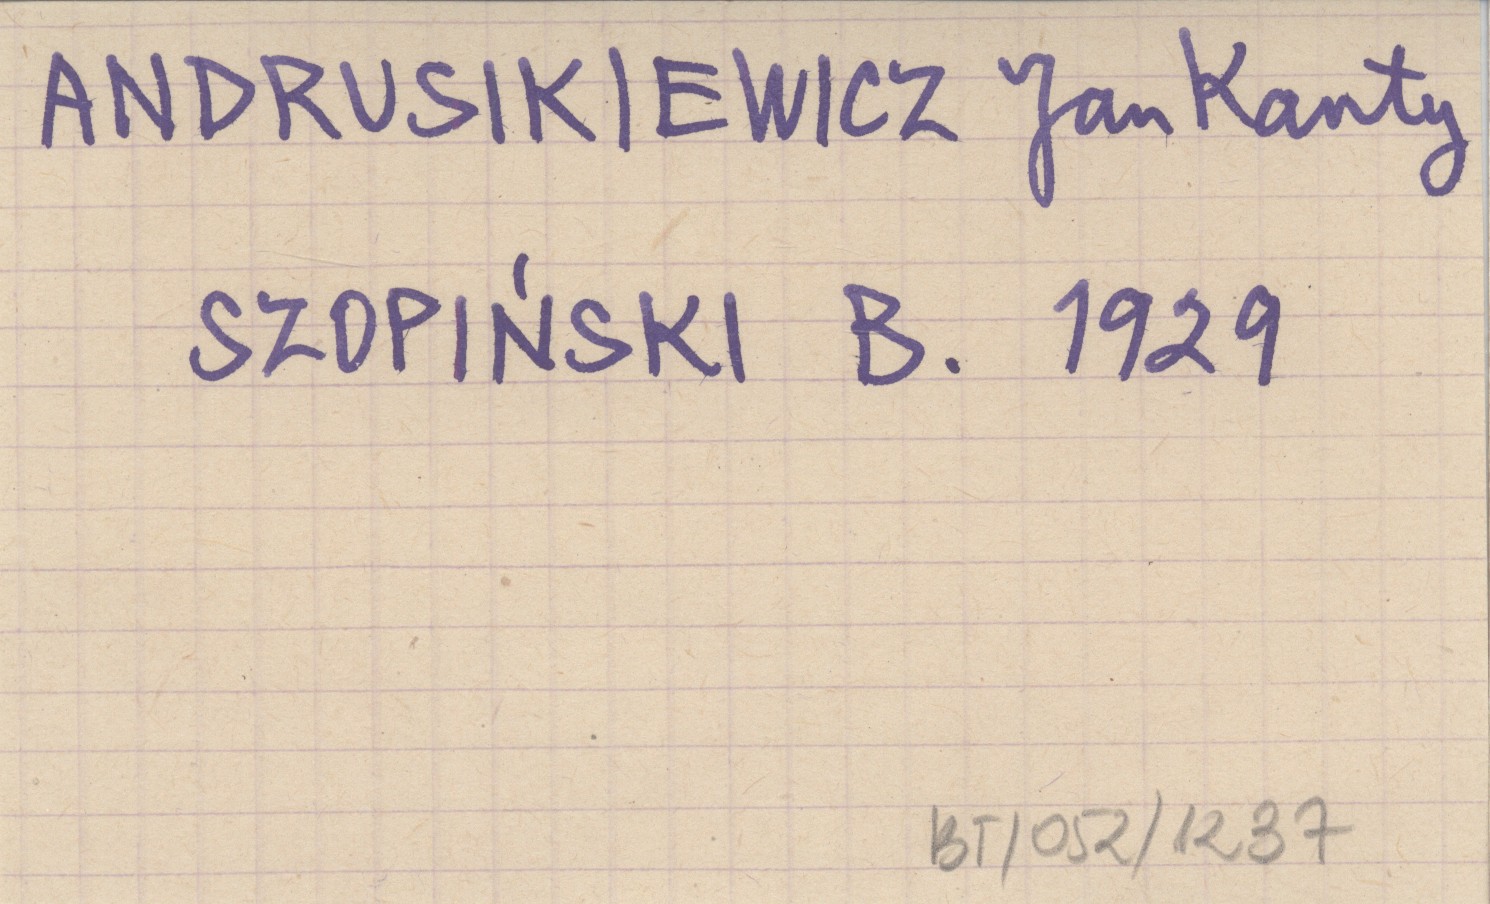 ANDRUSIKIEWICZ Jan Kanty
SZOPIŃSKI B. 1929
BT/052/1237